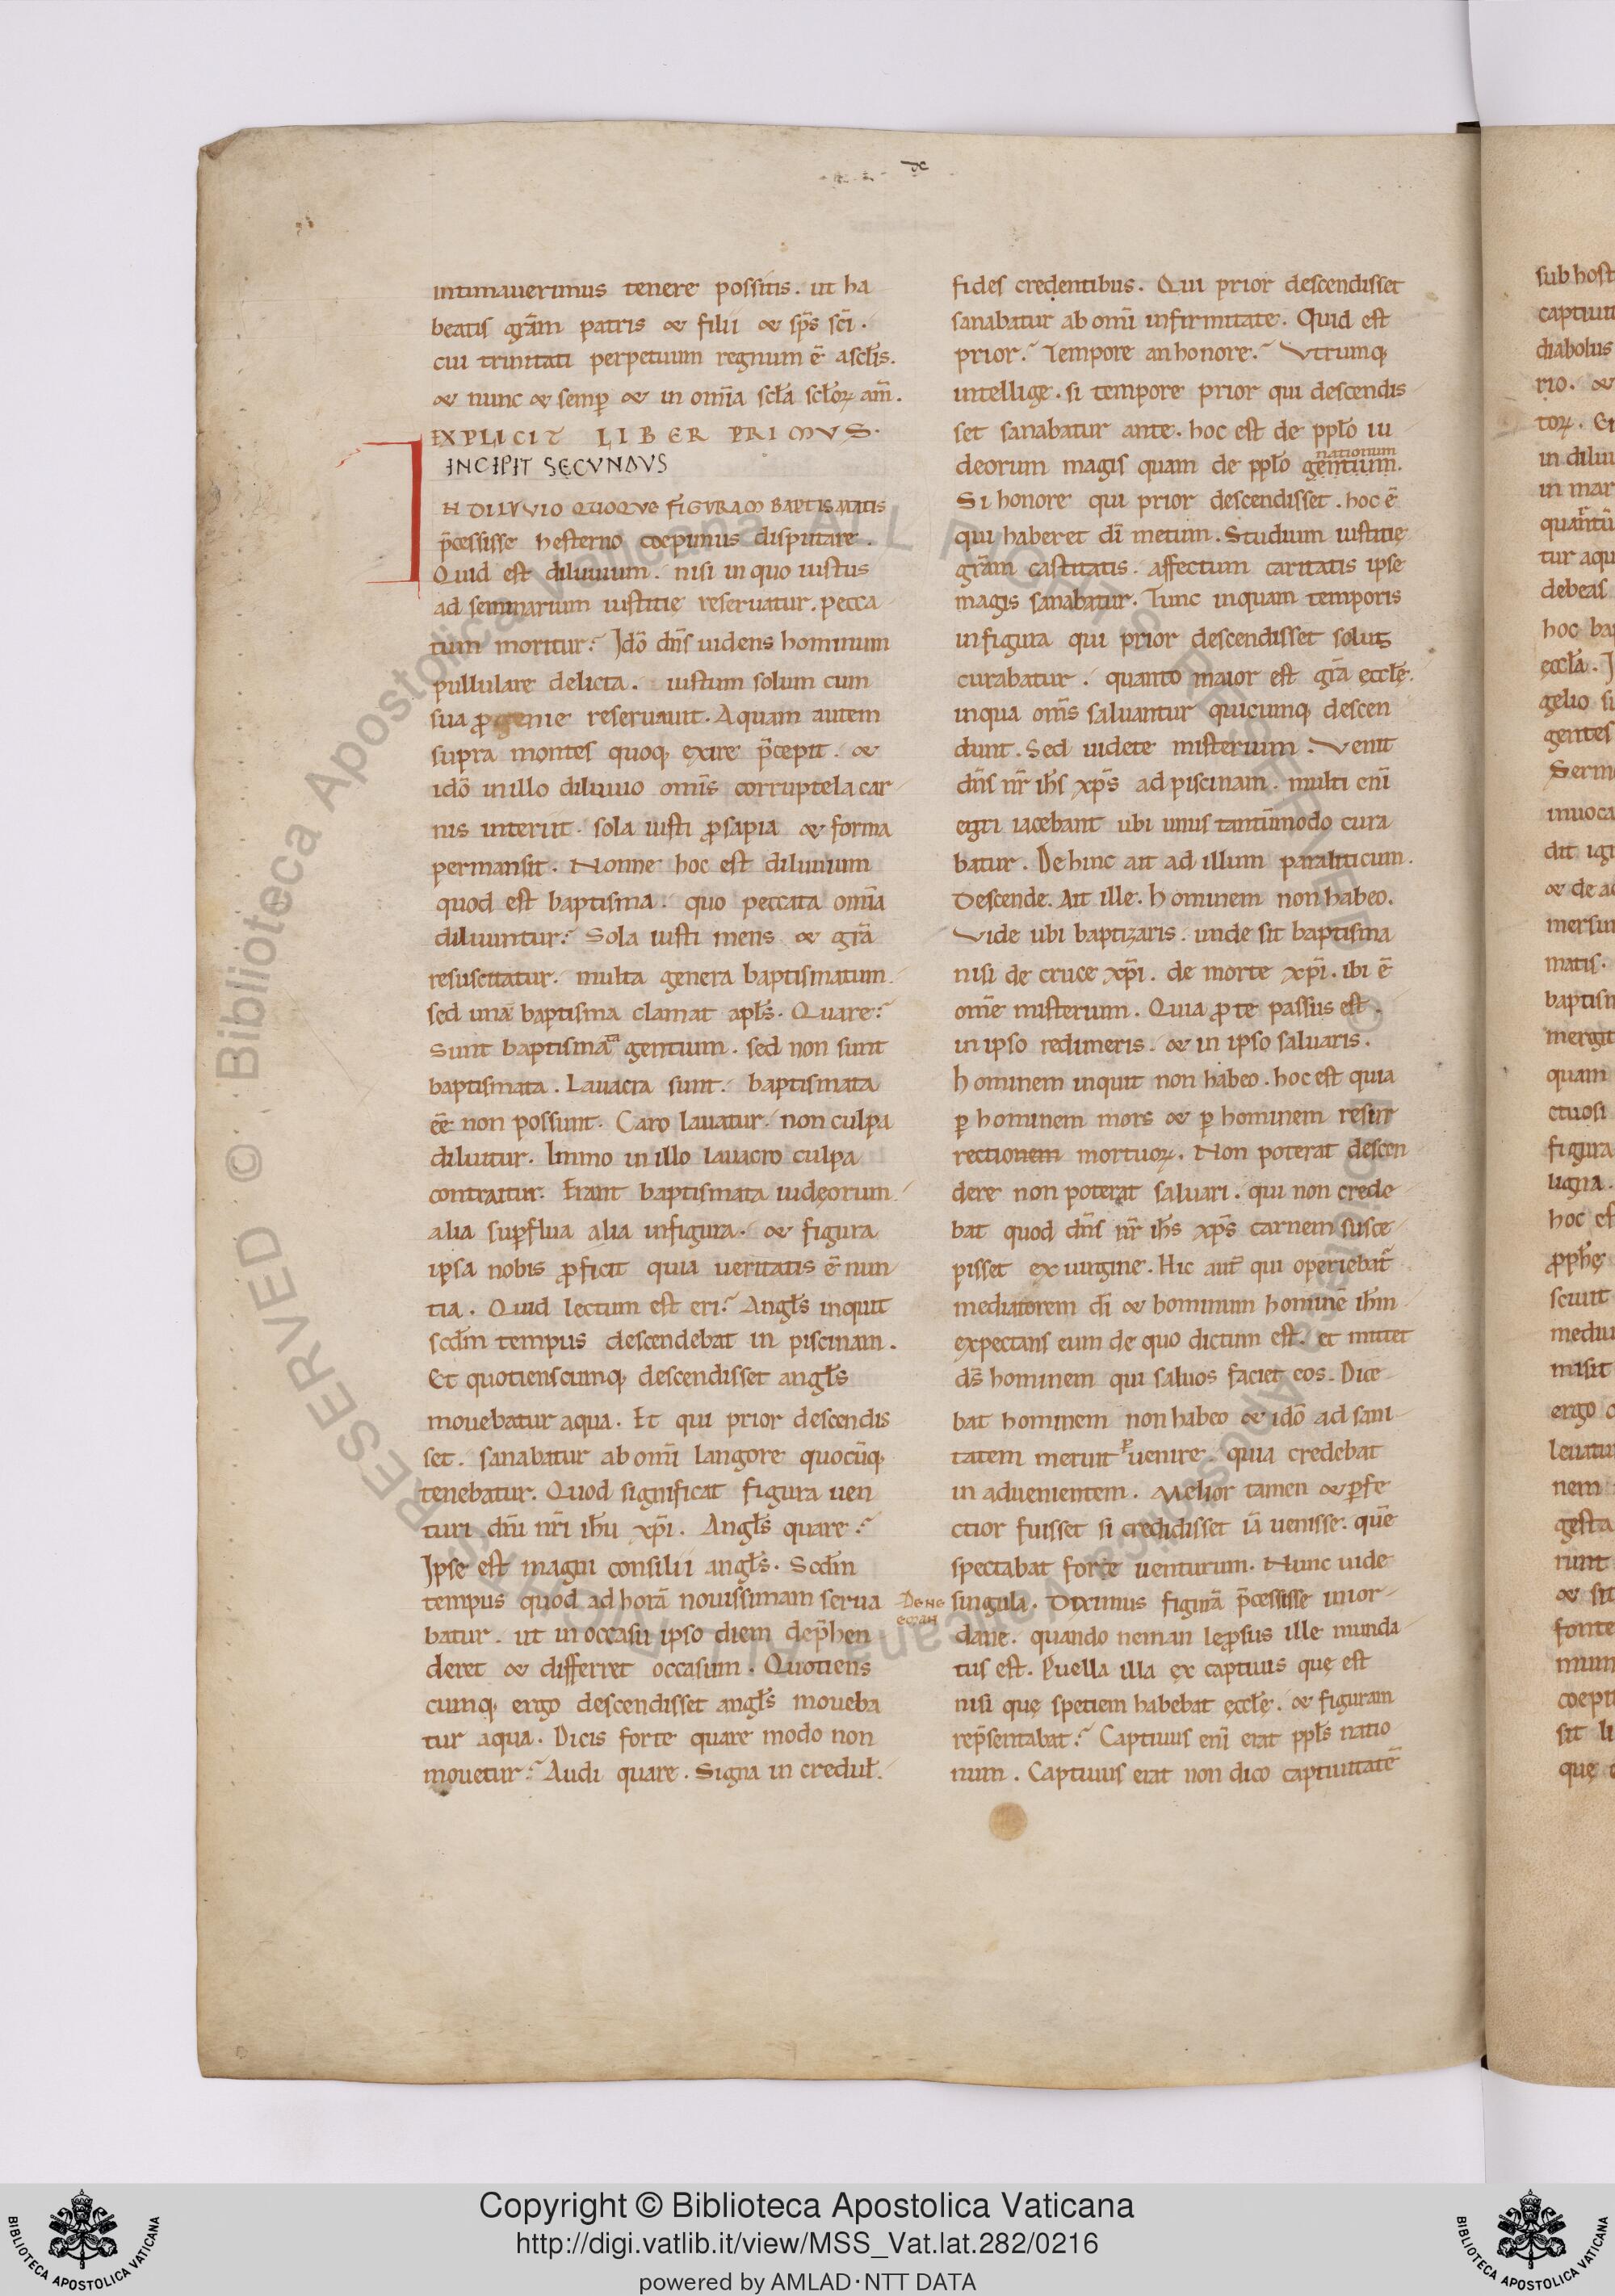 intimauerimus tenere possitis. ut ha
beatis gr̄am patris & filii & sp̄s sc̄i.
cui trinitati perpetuum regnum ē a scl̄is.
& nunc & semꝑ & in om̄ia scl̄a scl̄oꝝ am̄.
EXPLICIT LIBER PRIMVS.
INCIPIT SECVNDVS
IN DILVVIO QUOQVE FIGVRAM BAPTISMATIS
p̄cessisse hesterno coepimus disputare.
Quid est diluuium. nisi in quo iustus
ad seminarium iustitię reseruatur. pecca
tum moritur? Idō dn̄s uidens hominum
pullulare delicta. iustum solum cum
sua ꝓgenie reseruauit. Aquam autem
supra montes quoq; exire p̄cepit. &
idō in illo diluuio om̄is corruptela car
nis interiit. sola iusti ꝓsapia & forma
permansit. Nonne hoc est diluuium
quod est baptisma. quo peccata om̄ia
diluuntur? Sola iusti mens & gr̄a
resuscitatur. multa genera baptismatum.
sed unā baptisma clamat apl̄s. Quare?
Sunt baptismata gentium. sed non sunt
baptismata. Lauacra sunt. baptismata
ēē non possunt. Caro lauatur. non culpa
diluitur. Immo in illo lauacro culpa
contraitur. Erant baptismata iudęorum.
alia suꝑflua alia in figura. & figura
ipsa nobis ꝓficit quia ueritatis ē nun
tia. Quid lectum est eri? Angl̄s inquit
scd̄m tempus descendebat in piscinam.
Et quotienscumq; descendisset angl̄s
mouebatur aqua. Et qui prior descendis
set. sanabatur ab om̄i langore quocūq;
tenebatur. Quod significat figura uen
turi dn̄i nr̄i ih̄u xp̄i. Angl̄s quare?
Ipse est magni consilii angl̄s. Scd̄m
tempus quod ad horā nouissimam serua
batur. ut in occasu ipso diem dep̄hen
deret & differret occasum. Quotiens
cumq; ergo descendisset angl̄s moueba
tur aqua. Dicis forte quare modo non
mouetur? Audi quare. Signa in credul̄.
fides credentibus. Qui prior descendisset
sanabatur ab om̄i infirmitate. Quid est
prior? Tempore an honore? Vtrumq;
intellige. si tempore prior qui descendis
set sanabatur ante. hoc est de ppl̄o iu
nationum
deorum magis quam de ppl̄o gentium.
Si honore qui prior descendisset. hoc ē
qui haberet dī metum. Studium iustitię
gr̄am castitatis. affectum caritatis ipse
magis sanabatur. Tunc inquam temporis
in figura qui prior descendisset solus
curabatur. quanto maior est gr̄a ęccl̄ę.
in qua om̄s saluantur quicumq; descen
dunt. Sed uidete misterium. Venit
dn̄s nr̄ ih̄s xp̄s ad piscinam. multi en̄i
egri iacebant ubi unus tantūmodo cura
batur. Dehinc ait ad illum paraliticum.
Descende. Ait ille. Hominem non habeo.
Vide ubi baptizaris. unde sit baptisma
nisi de cruce xp̄i. de morte xp̄i. ibi ē
om̄e misterium. Quia ꝓ te passus est.
in ipso redimeris. & in ipso saluaris.
Hominem inquit non habeo. hoc est quia
ꝑ hominem mors & ꝑ hominem resur
rectionem mortuoꝝ. Non poterat descen
dere non poterat saluari. qui non crede
bat quod dn̄s nr̄ ih̄s xp̄s carnem susce
pisset ex uirgine. Hic aut̄ qui operiebat̄
mediatorem dī & hominum hominē ih̄m
expectans eum de quo dictum est. et mittet
ds̄ hominem qui saluos faciet eos. Dice
bat hominem non habeo & idō ad sani
tatem meruit ꝑuenire. quia credebat
in aduenientem. Melior tamen & ꝑfe
ctior fuisset si credidisset iā uenisse. quē
spectabat forte uenturum. Nunc uide
De Ne
eman
singula. Diximus figurā p̄cessisse in ior
dane. quando neman leprosus ille munda
tus est. Puella illa ex captiuis quę est
nisi quę spetiem habebat ęccl̄ę. & figuram
rep̄sentabat? Captiuus en̄i erat ppl̄s natio
num. Captiuus erat non dico captiuitatē
sub host
captiuit
diabolus
rio. &
toꝝ.
in dilu
in mar
tur aqu
debeas
hoc ba
ęccl̄a.
gelio
gentes
Serm
inuoca
dit ig
& de a
mersu
matis.
baptism
mergit
quam
ctuosi
figura
ligna.
hoc es
scuit
mediu
misit
ergo
leuatu
nem
gesta
runt
& sit
fonte
mun
coepit
sit li
quę
Copyright © Biblioteca Apostolica Vaticana
http://digi.vatlib.it/view/MSS_Vat.lat.282/0216
powered by AMLAD·NTT DATA
BIBLIOTECA APOSTOLICA VATICANA
BIBLIOTECA APOSTOLICA VATICANA